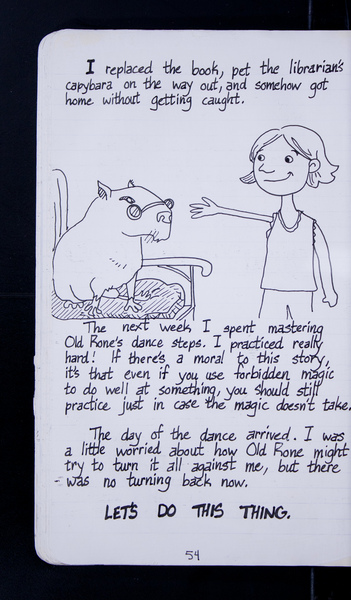 I replaced the book, pet the librarian's
capybara on the way out, and somehow got
home without getting caught.
The next week I spent mastering
Old Rone's dance steps. I practiced really
hard! If there's a moral to this story,
it's that even if you use forbidden magic
to do well at something, you should still
practice just in case the magic doesn't take.
The day of the dance arrived. I was
a little worried about how Old Rone might
try to turn it all against me, but there
was no turning back now.
LET'S DO THIS THING.
54